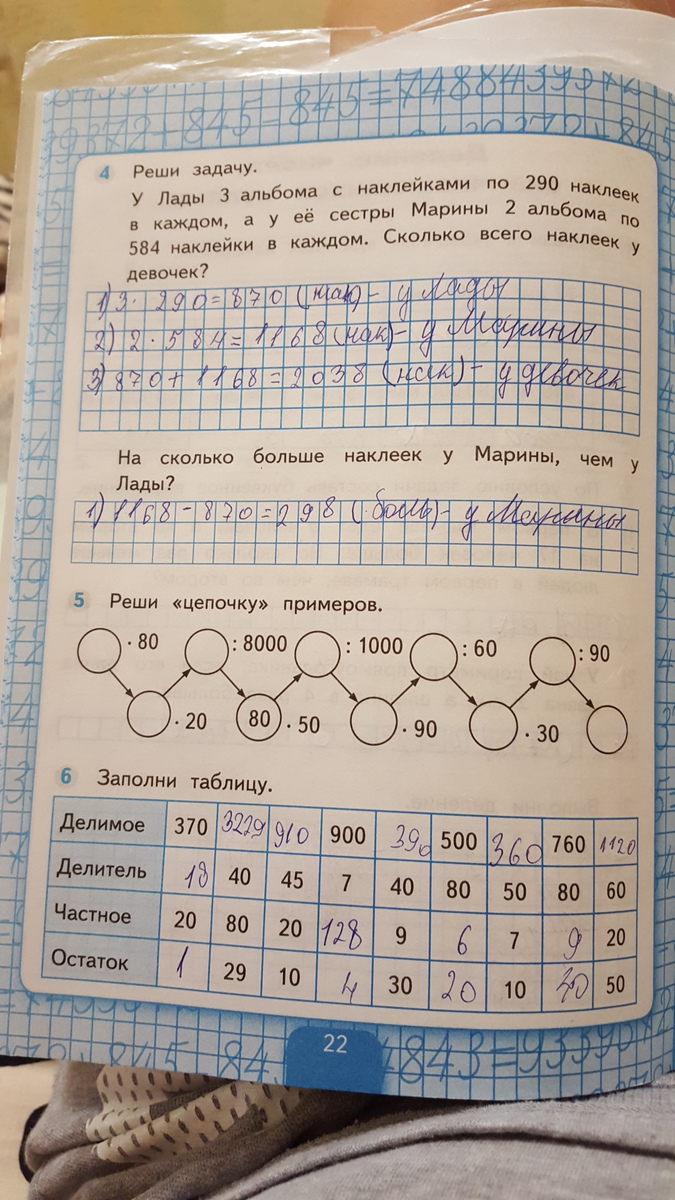 4 Реши задачу.
У Лады 3 альбома с наклейками по 290 наклеек
в каждом, а у её сестры Марины 2 альбома по
584 наклейки в каждом. Сколько всего наклеек у
девочек?
1) 3 · 290 = 870 (нак) - у Лады
2) 2 · 584 = 1168 (нак) - у Марины
3) 870 + 1168 = 2038 (нак) - у девочек
На сколько больше наклеек у Марины, чем у
Лады?
1) 1168 - 870 = 298 (боль) - у Марины
5 Реши «цепочку» примеров.
· 80 : 8000 : 1000 : 60 : 90
· 20 80 · 50 · 90 · 30
6 Заполни таблицу.
Делимое 370 3229 910 900 390 500 360 760 1120
Делитель 18 40 45 7 40 80 50 80 60
Частное 20 80 20 128 9 6 7 9 20
Остаток 1 29 10 4 30 20 10 40 50
22